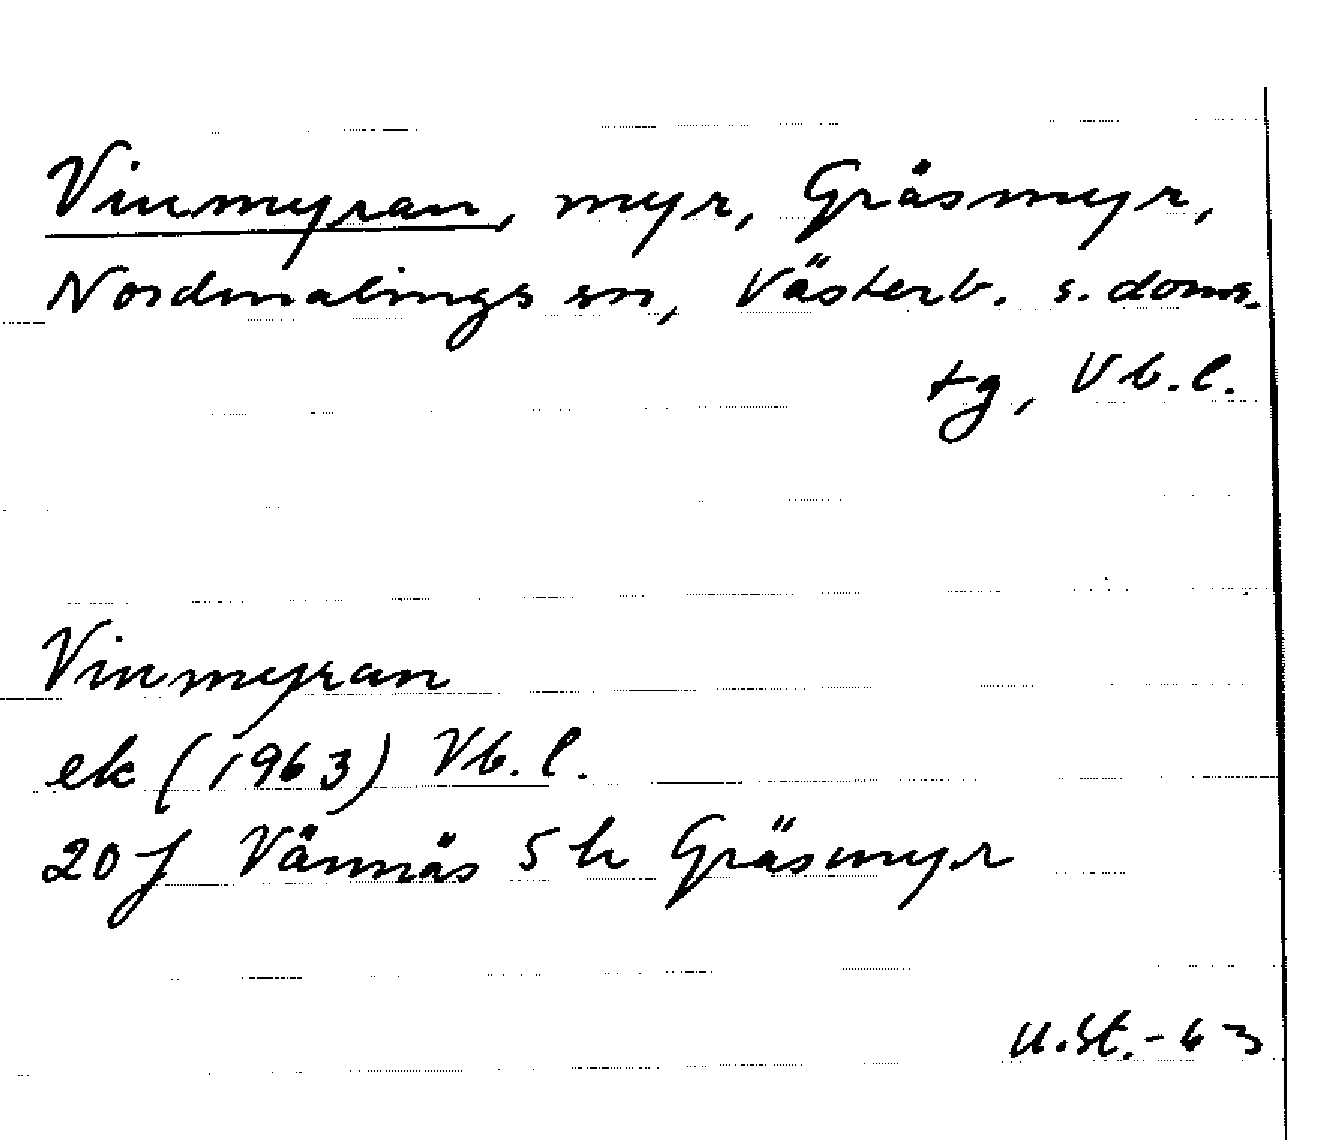 Vinmyran, myr, Gräsmyr,
Nordmalings sn, Västerb. s. doms.
tg, Vb. l.
Vinmyran
ek (1963) Vb. l.
20 J Vännäs 5 h Gräsmyr
U. St. - 63